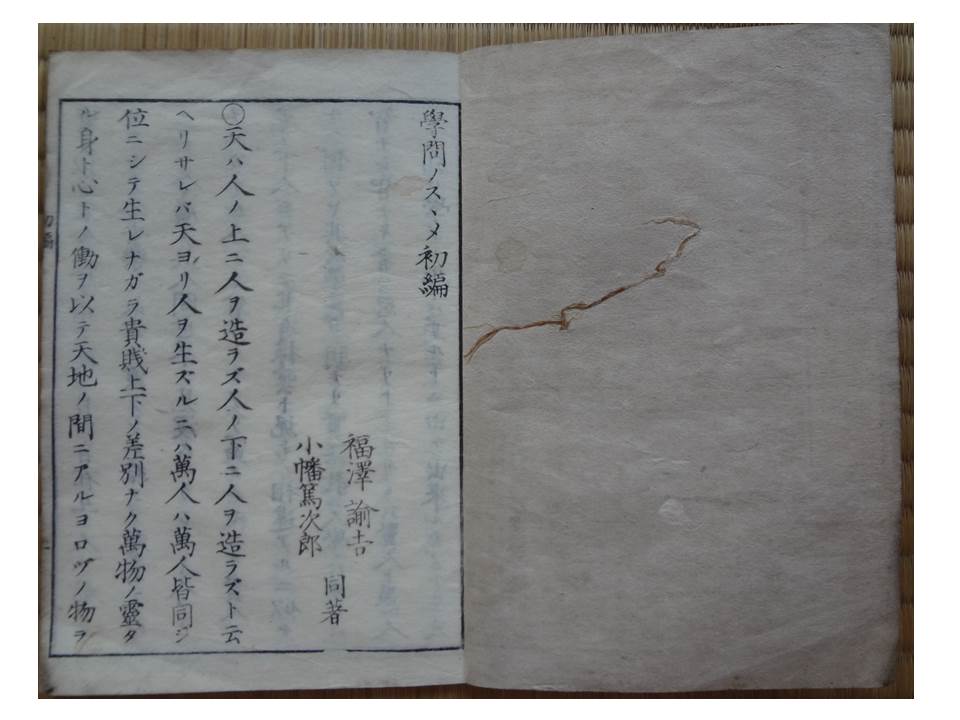 學問ノスヽメ初編
福澤諭吉
小幡篤次郎
同著
天ハ人ノ上ニ人ヲ造ラズ人ノ下ニ人ヲ造ラズト云
ヘリサレバ天ヨリ人ヲ生ズルニハ萬人ハ萬人皆同ジ
位ニシテ生レナガラ貴賤上下ノ差別ナク萬物ノ靈タ
ル身ト心トノ働ヲ以テ天地ノ間ニアルヨロヅノ物ヲ
初編